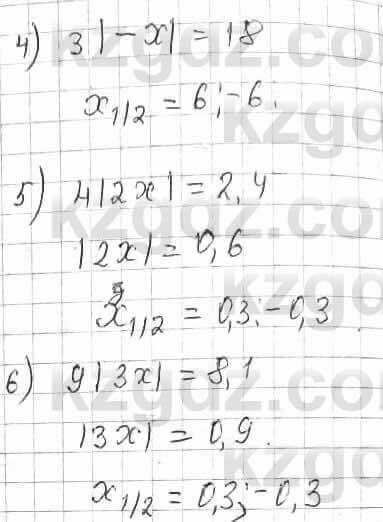 4) 3|-x| = 18
x1/2 = 6; -6.
5) 4|2x| = 2,4
|2x| = 0,6
x1/2 = 0,3; -0,3
6) 9|3x| = 8,1
|3x| = 0,9.
x1/2 = 0,3; -0,3
kzgdz.com